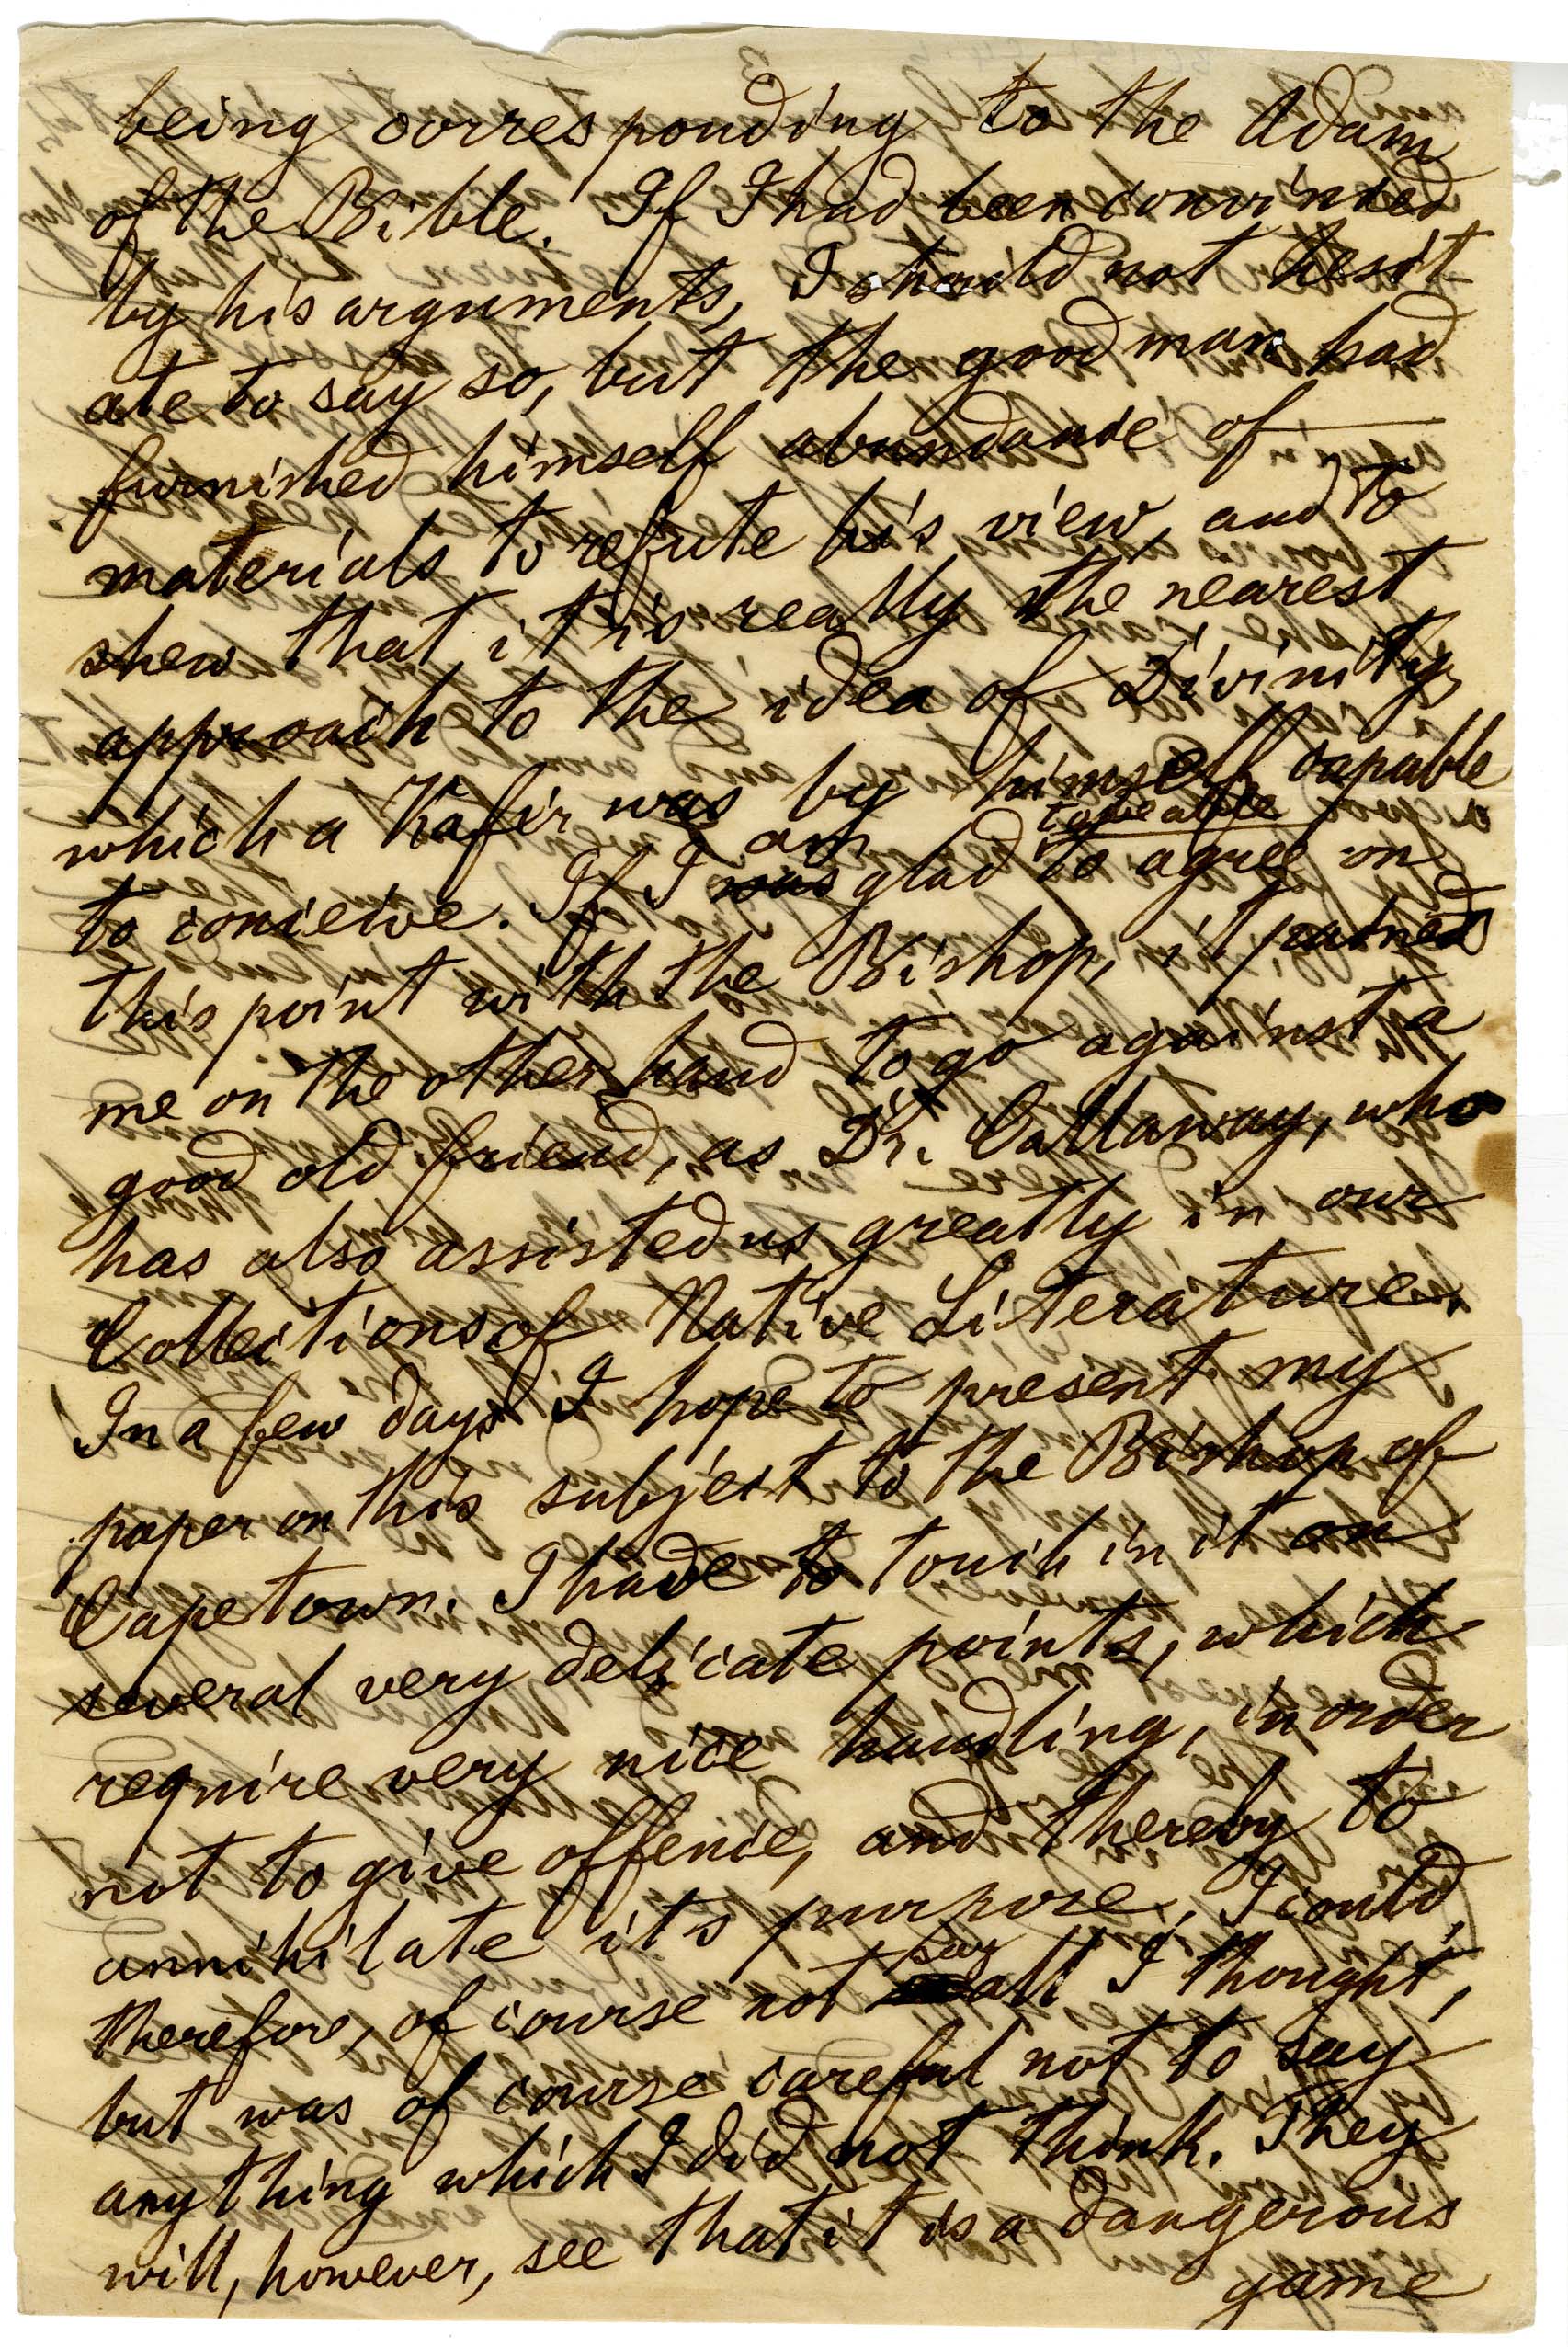 being corresponding to the Adam
of the Bible. If I had been convinced
by his arguments, I should not hesit-
ate to say so, but the good man had
furnished himself abundance of
materials to refute his view, and to
shew that it is really the nearest
approach to the idea of Divinity,
which a Kafir was by himself capable
to concieve. If I was am glad to be able to agree on
this point with the Bishop, it pained
me on the other hand to go against a
good old friend, as Dr. Callaway, who
has also assisted us greatly in our
Collections of Native Literature.
In a few days I hope to present my
paper on this subject to the Bishop of
Capetown. I have to touch in it on
several very delicate points, which
require very nice handling, in order
not to give offence, and thereby to
annihilate its purpose. I could,
therefore, of course not say all I thought,
but was of course careful not to say
anything which I did not think. They
will, however, see that it is a dangerous
game